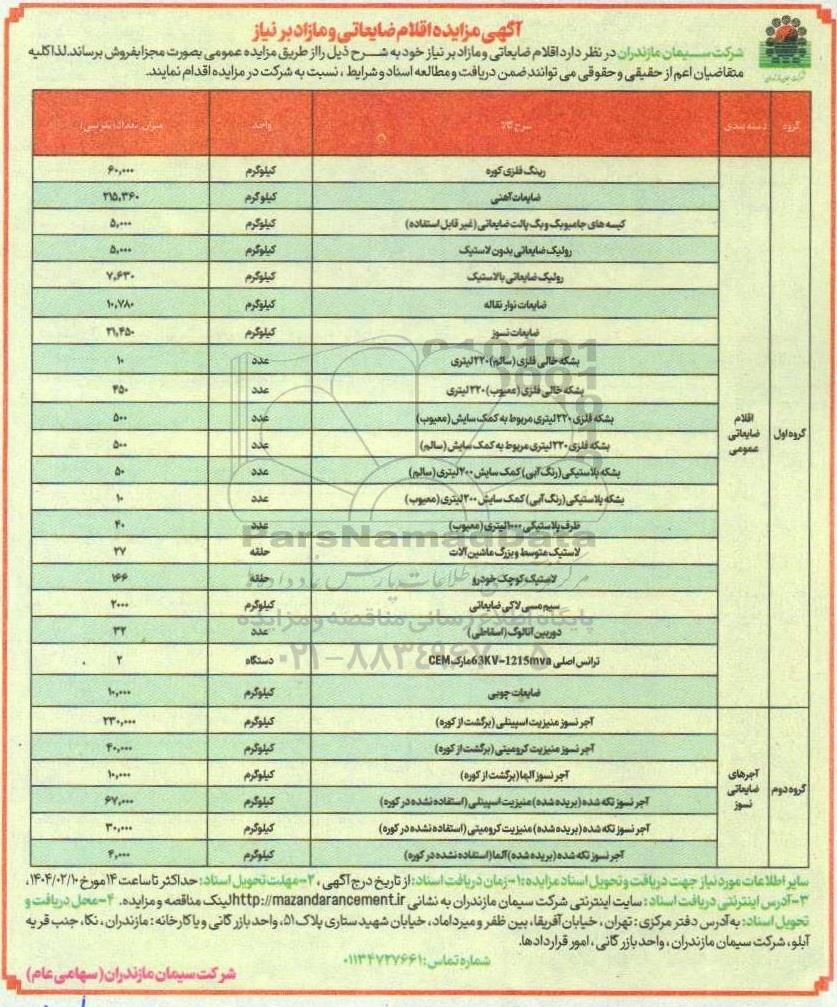 آگهی مزایده اقلام ضایعاتی و مازاد بر نیاز
شرکت سیمان مازندران در نظر دارد اقلام ضایعاتی و مازاد بر نیاز خود به شرح ذیل را از طریق مزایده عمومی بصورت مجزا بفروش برساند. لذا کلیه
متقاضیان اعم از حقیقی و حقوقی می توانند ضمن دریافت و مطالعه اسناد و شرایط ، نسبت به شرکت در مزایده اقدام نمایند.
گروه دسته بندی شرح کالا واحد میزان/تعداد(تقریبی)
رینگ فلزی کوره کیلوگرم ۶۰,۰۰۰
ضایعات آهنی کیلوگرم ۲۱۵,۳۶۰
کیسه های جامبوبگ و بگ پالت ضایعاتی (غیر قابل استفاده) کیلوگرم ۵,۰۰۰
رولیک ضایعاتی بدون لاستیک کیلوگرم ۵,۰۰۰
رولیک ضایعاتی بالاستیک کیلوگرم ۷,۶۳۰
ضایعات نوار نقاله کیلوگرم ۱۰,۷۸۰
ضایعات نسوز کیلوگرم ۲۱,۴۵۰
بشکه خالی فلزی (سالم) ۲۲۰ لیتری عدد ۱۰
بشکه خالی فلزی (معیوب) ۲۲۰ لیتری عدد ۴۵۰
گروه اول اقلام ضایعاتی عمومی
بشکه فلزی ۲۲۰ لیتری مربوط به کمک سایش (معیوب) عدد ۵۰۰
بشکه فلزی ۲۲۰ لیتری مربوط به کمک سایش (سالم) عدد ۵۰۰
بشکه پلاستیکی (رنگ آبی) کمک سایش ۲۰۰ لیتری (سالم) عدد ۵۰
بشکه پلاستیکی (رنگ آبی) کمک سایش ۲۰۰ لیتری (معیوب) عدد ۱۰
ظرف پلاستیکی ۱۰۰۰ لیتری (معیوب) عدد ۴۰
لاستیک متوسط و بزرگ ماشین آلات حلقه ۲۷
لاستیک کوچک خودرو حلقه ۱۶۶
سیم مسی لاکی ضایعاتی کیلوگرم ۲۰۰۰
دوربین آنالوگ (اسقاطی) عدد ۳۲
ترانس اصلی 63KV-1215mva مارک CEM دستگاه ۲
ضایعات چوبی کیلوگرم ۱۰,۰۰۰
آجر نسوز منیزیت اسپینلی (برگشت از کوره) کیلوگرم ۲۳۰,۰۰۰
آجر نسوز منیزیت کرومیتی (برگشت از کوره) کیلوگرم ۴۰,۰۰۰
آجر نسوز آلما (برگشت از کوره) کیلوگرم ۱۰,۰۰۰
گروه دوم آجرهای ضایعاتی نسوز
آجر نسوز تکه شده (بریده شده) منیزیت اسپینلی (استفاده نشده در کوره) کیلوگرم ۶۷,۰۰۰
آجر نسوز تکه شده (بریده شده) منیزیت کرومیتی (استفاده نشده در کوره) کیلوگرم ۳۰,۰۰۰
آجر نسوز تکه شده (بریده شده) آلما (استفاده نشده در کوره) کیلوگرم ۴,۰۰۰
سایر اطلاعات مورد نیاز جهت دریافت و تحویل اسناد مزایده: ۱-زمان دریافت اسناد: از تاریخ درج آگهی ، ۲-مهلت تحویل اسناد: حداکثر تا ساعت ۱۴ مورخ ۱۴۰۴/۰۲/۱۰،
۳-آدرس اینترنتی دریافت اسناد : سایت اینترنتی شرکت سیمان مازندران به نشانی http://mazandarancement.ir لینک مناقصه و مزایده. ۴-محل دریافت و
تحویل اسناد: به آدرس دفتر مرکزی : تهران ، خیابان آفریقا، بین ظفر و میرداماد، خیابان شهید ستاری پلاک ۵۱، واحد بازرگانی و یا کارخانه : مازندران ، نکا، جنب قریه
آبلو، شرکت سیمان مازندران ، واحد بازرگانی ، امور قراردادها.
شماره تماس: ۰۱۱۳۴۷۲۷۶۶۱
شرکت سیمان مازندران (سهامی عام)
ParsNamadData
پایگاه اطلاع رسانی مناقصه و مزایده
۰۲۱-۸۸۳۴۹۶۷۰-۵